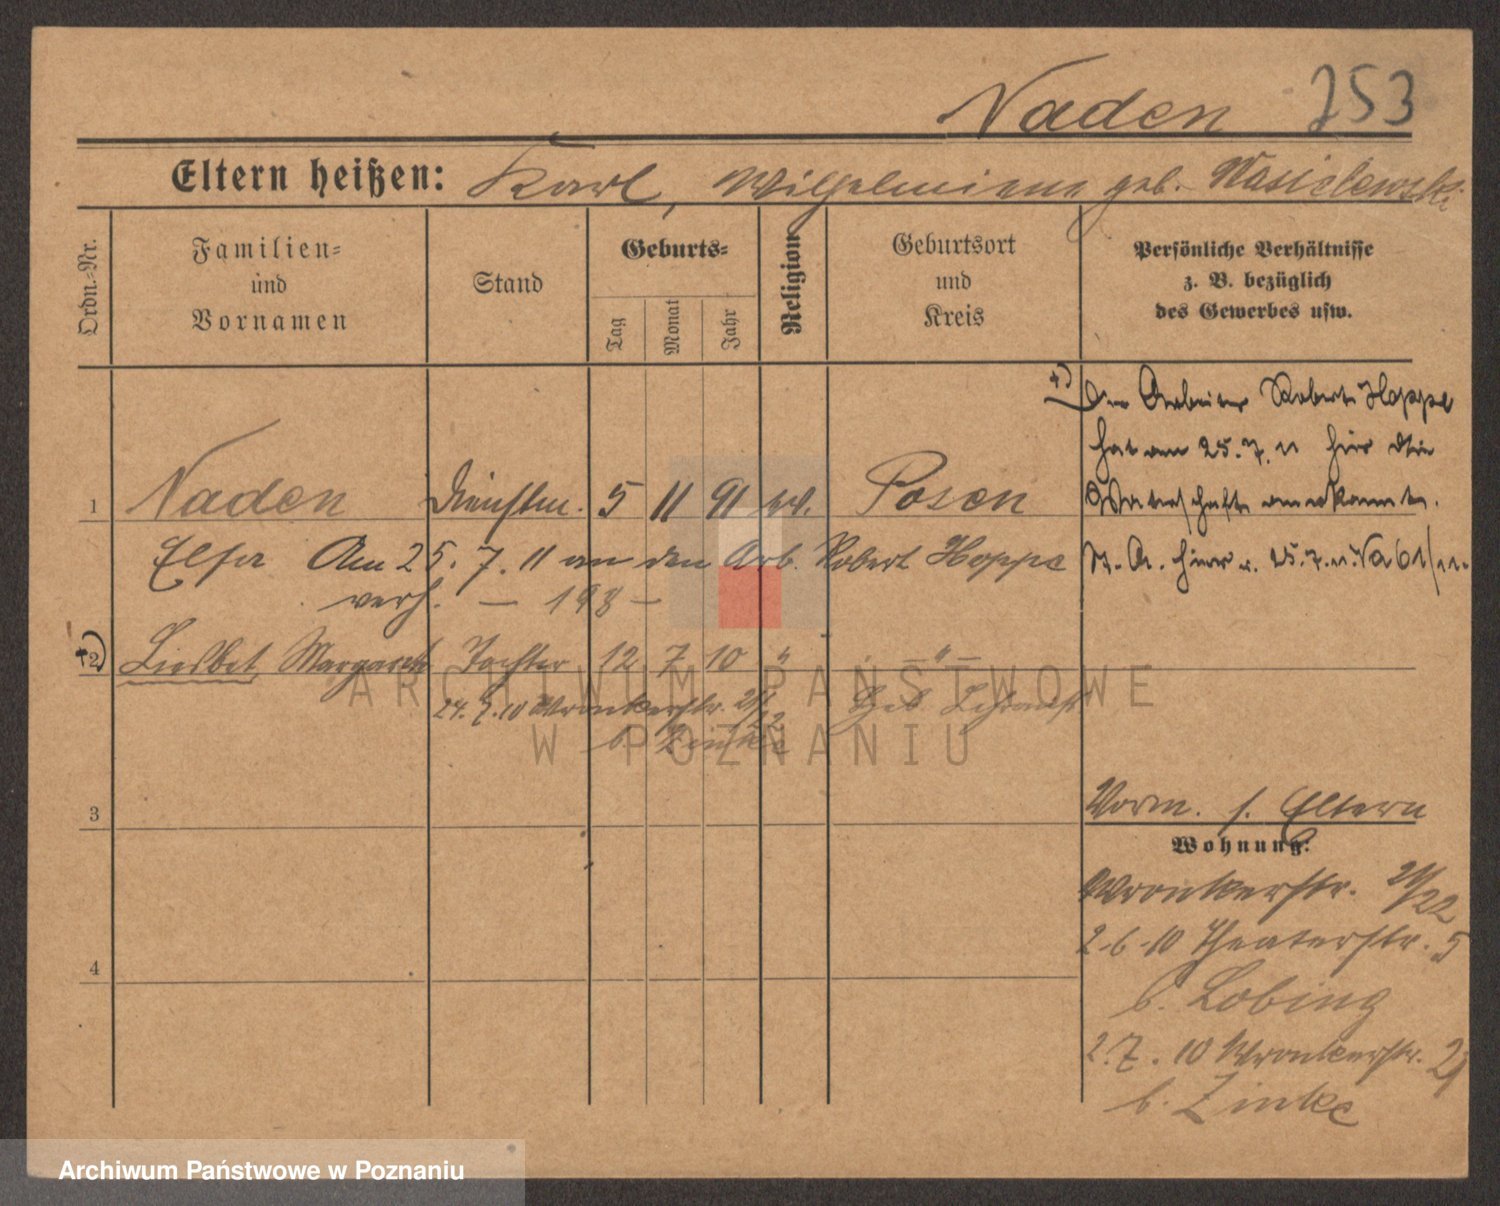 Naden 253
Eltern heißen: Karl, Wilhelmine geb. Wasielewski
Ordn.-Nr.
Familien-
und
Vornamen
Stand
Geburts-
Tag
Monat
Jahr
Religion
Geburtsort
und
Kreis
Persönliche Verhältnisse
z. B. bezüglich
des Gewerbes usw.
+) Der Arbeiter Robert Hoppe
hat am 25. 7. 11 hier die
Vaterschaft anerkannt.
St. A. hier v. 25. 7. 11. Na 61/11.
1 Naden Dienstm. 5 11 91 ev. Posen
Elsa Am 25. 7. 11 an den Arb. Robert Hoppe
verh. — 198 —
+) 2 Liesbet, Margarete Tochter 12 7 10 " — " —
24. 7. 10 Wronkerstr. 21/22
b Zinke
3
4
Vorm. s. Eltern
Wohnung:
Wronkerstr. 21/22
2-6-10 Theaterstr. 5
b. Lobing
2. 7. 10 Wronkerstr. 21
b. Zinke
ARCHIWUM PAŃSTWOWE
W POZNANIU
Archiwum Państwowe w Poznaniu